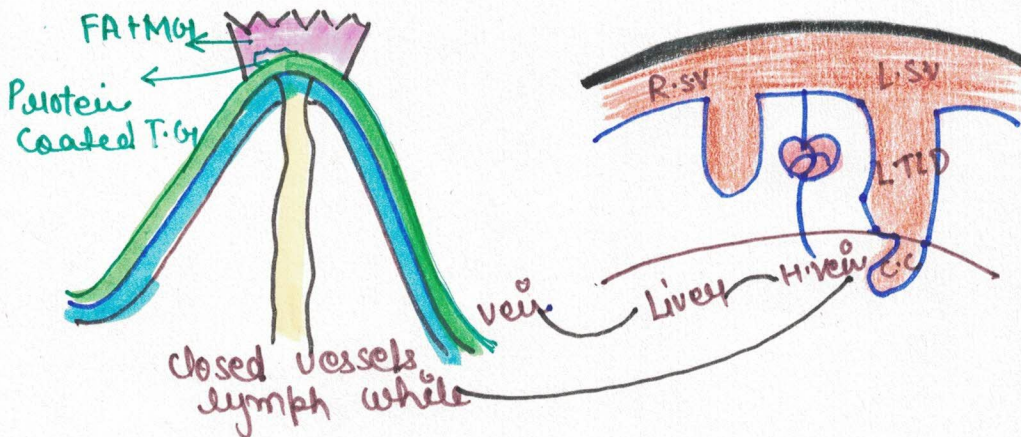 FA+MG
Protein
Coated T.G
R.S.V
L.S.V
L.TLD
C.C
H.vein
Liver
vein
closed vessels
lymph while